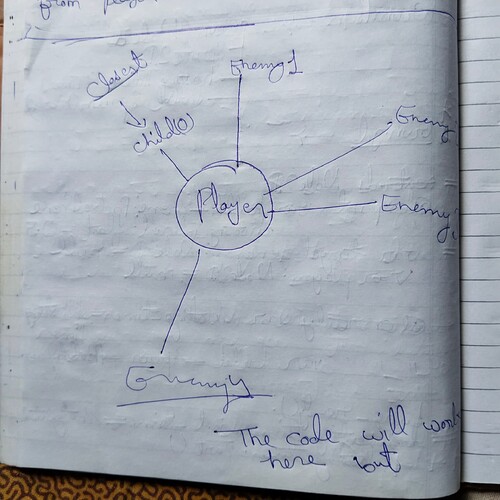 from
Closest
Enemy 1
child(0)
Enemy
Player
Enemy
Enemy
The code will work
here but